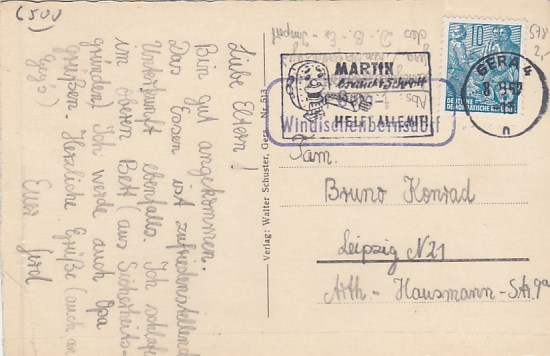 (500
578
2,-
Liebe Eltern!
Bin gut angekommen.
Das Essen ist zufriedenstellend
Unterkunft ebenfalls. Ich schlafe
im obern Bett (aus Sicherheits-
gründen). Ich werde auch Opa
grüßen. Herzliche Grüße (auch an
Euer Gerd
Verlag: Walter Schuster, Gera, Nr. 513
MARTIN
braucht Schrott
HELFT ALLE MIT!
Abs:
Windischenbernsdorf
10
DEUTSCHE
DEMOKRATISCHE REPUBLIK
GERA 4
n
Fam.
Bruno Konrad
Leipzig N21
Arth.-Hausmann-Str. 9a